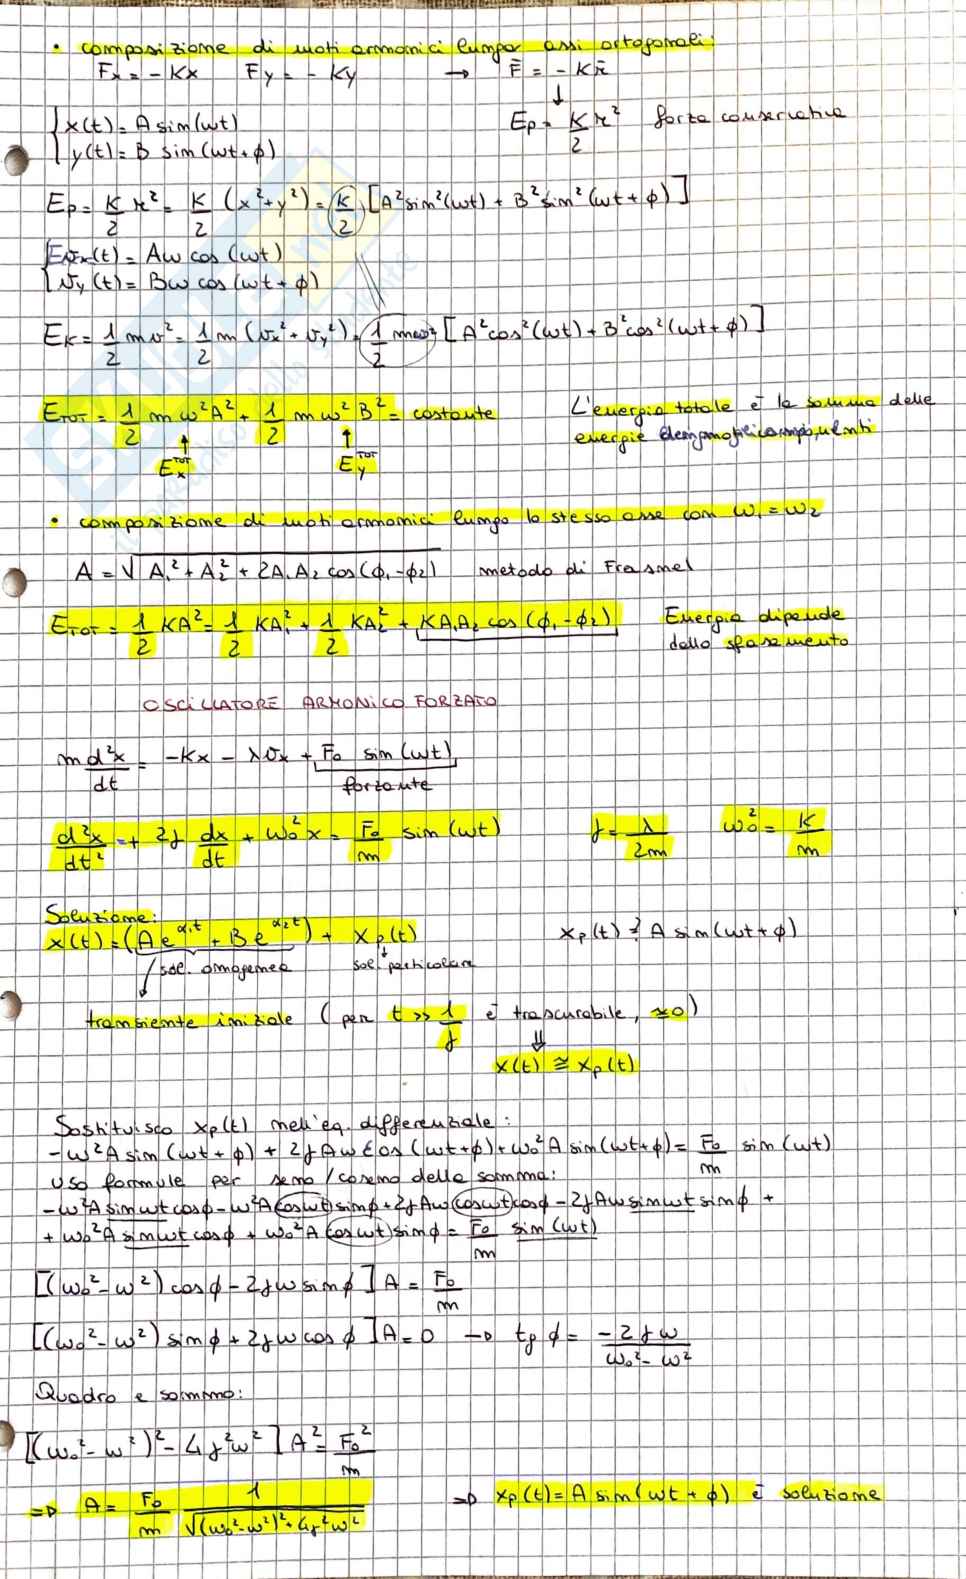 • composizione di moti armonici lungo assi ortogonali:
Fx = -Kx   Fy = -Ky   → F̄ = -Kr̄
↓
{x(t) = A sin(ωt)   Ep = K/2 r²   forza conservativa
{y(t) = B sin(ωt+ϕ)
Ep = K/2 r² = K/2 (x²+y²) = K/2 [A² sin²(ωt) + B² sin²(ωt+ϕ)]
{vx(t) = Aω cos(ωt)
{vy(t) = Bω cos(ωt+ϕ)
EK = 1/2 mv² = 1/2 m (vx²+vy²) = 1/2 mω² [A² cos²(ωt) + B² cos²(ωt+ϕ)]
ETOT = 1/2 mω²A² + 1/2 mω²B² = costante   L'energia totale è la somma delle
energie
↑   ↑
Ex^TOT   Ey^TOT
• composizione di moti armonici lungo lo stesso asse con ω₁=ω₂
A = √A₁² + A₂² + 2A₁A₂ cos(ϕ₁-ϕ₂)   metodo di Fresnel
ETOT = 1/2 KA² = 1/2 KA₁² + 1/2 KA₂² + KA₁A₂ cos(ϕ₁-ϕ₂)   Energia dipende
dallo sfasamento
OSCILLATORE ARMONICO FORZATO
m d²x/dt = -Kx - λvx + F₀ sin(ωt)
forzante
d²x/dt² + 2γ dx/dt + ω₀²x = F₀/m sin(ωt)   γ = λ/2m   ω₀² = K/m
Soluzione:
x(t) = (Ae^α₁t + Be^α₂t) + xp(t)   xp(t) ?= A sin(ωt+ϕ)
sol. omogenea   sol. particolare
transiente iniziale (per t >> 1/γ è trascurabile, ≃0)
⇓
x(t) ≅ xp(t)
Sostituisco xp(t) nell'eq. differenziale:
-ω²A sin(ωt+ϕ) + 2γAω cos(ωt+ϕ) + ω₀²A sin(ωt+ϕ) = F₀/m sin(ωt)
Uso formule per seno/coseno della somma:
-ω²A sinωt cosϕ - ω²A cosωt sinϕ + 2γAω cosωt cosϕ - 2γAω sinωt sinϕ +
+ ω₀²A sinωt cosϕ + ω₀²A cosωt sinϕ = F₀/m sin(ωt)
[(ω₀²-ω²) cosϕ - 2γω sinϕ] A = F₀/m
[(ω₀²-ω²) sinϕ + 2γω cosϕ] A = 0 → tg ϕ = -2γω/ω₀²-ω²
Quadro e sommo:
[(ω₀²-ω²)² - 4γ²ω²] A² = F₀²/m
⇒ A = F₀/m 1/√(ω₀²-ω²)²+4γ²ω²   ⇒ xp(t) = A sin(ωt+ϕ) è soluzione